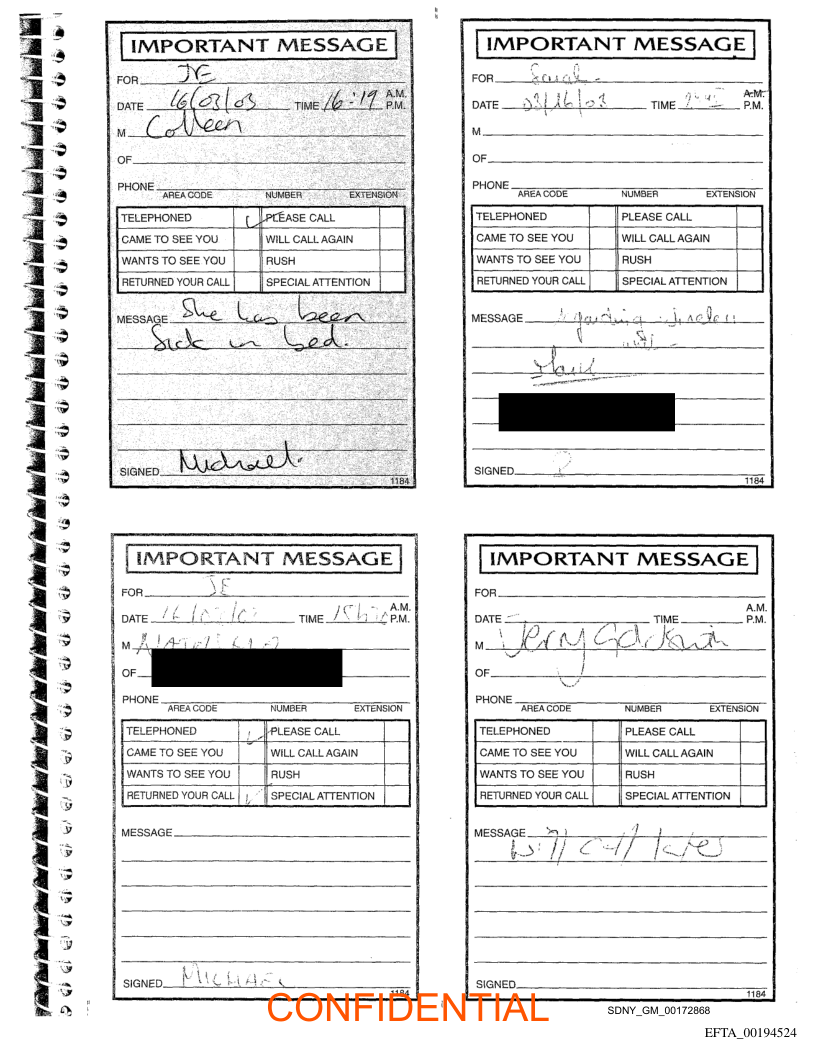 IMPORTANT MESSAGE
FOR JE
DATE 16/03/03 TIME 16:19 A.M. P.M.
M Colleen
OF
PHONE
AREA CODE NUMBER EXTENSION
TELEPHONED PLEASE CALL
CAME TO SEE YOU WILL CALL AGAIN
WANTS TO SEE YOU RUSH
RETURNED YOUR CALL SPECIAL ATTENTION
MESSAGE She has been
Sick in bed.
SIGNED Michael.
1184
IMPORTANT MESSAGE
FOR Sarah
DATE 03/16/03 TIME A.M. P.M.
M
OF
PHONE
AREA CODE NUMBER EXTENSION
TELEPHONED PLEASE CALL
CAME TO SEE YOU WILL CALL AGAIN
WANTS TO SEE YOU RUSH
RETURNED YOUR CALL SPECIAL ATTENTION
MESSAGE
SIGNED
1184
IMPORTANT MESSAGE
FOR JE
DATE TIME A.M. P.M.
M
OF
PHONE
AREA CODE NUMBER EXTENSION
TELEPHONED PLEASE CALL
CAME TO SEE YOU WILL CALL AGAIN
WANTS TO SEE YOU RUSH
RETURNED YOUR CALL SPECIAL ATTENTION
MESSAGE
SIGNED MICHAEL
1184
IMPORTANT MESSAGE
FOR
DATE TIME A.M. P.M.
M Jerry
OF
PHONE
AREA CODE NUMBER EXTENSION
TELEPHONED PLEASE CALL
CAME TO SEE YOU WILL CALL AGAIN
WANTS TO SEE YOU RUSH
RETURNED YOUR CALL SPECIAL ATTENTION
MESSAGE will call later
SIGNED
1184
CONFIDENTIAL
SDNY_GM_00172868
EFTA_00194524